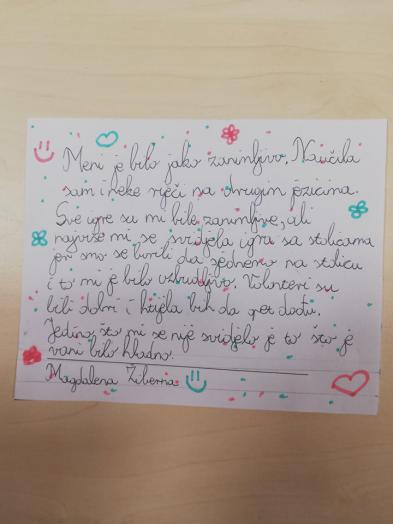 Meni je bilo jako zanimljivo. Naučila
sam i neke riječi na drugim jezicima.
Sve igre su mi bile zanimljive, ali
najviše mi se svidjela igra sa stolicama
jer smo se borili da sjednemo na stolicu
i to mi je bilo uzbudljivo. Volonteri su
bili dobri i htjela bih da opet dođu.
Jedino što mi se nije svidjelo je to što je
vani bilo hladno.
Magdalena Žiberna